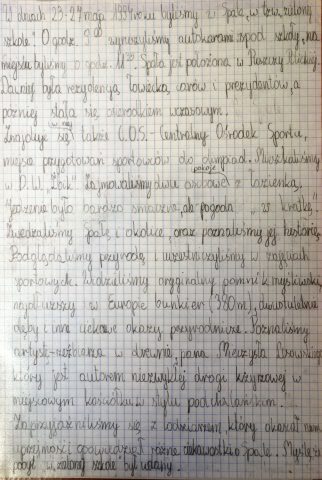 W dniach 23-27 maja 1994 roku byliśmy w Spale, w tzw. "zielonej
szkole". O godz. 9⁰⁰ wyruszyliśmy autokarami spod szkoły, na
miejscu byliśmy o godz. 11³⁰. Spała jest położona w Puszczy Pilickiej.
Dawniej była rezydencją łowiecką carów i prezydentów, a
później stała się ośrodkiem wczasowym.
Znajduje się w niej także C.O.S. - Centralny Ośrodek Sportu,
miejsce przygotowań sportowców do olimpiad. Mieszkaliśmy
w D.W. Zajmowaliśmy dwu osobowe pokoje z łazienką,
jedzenie było bardzo smaczne, ale pogoda "w kratkę".
Zwiedzaliśmy Spałę i okolice, oraz poznaliśmy jej historię.
Podglądaliśmy przyrodę i uczestniczyliśmy w zajęciach
sportowych. Widzieliśmy oryginalny pomnik myśliwski,
najdłuższy w Europie bunkier (380m), dwustuletnie
dęby i inne ciekawe okazy przyrodnicze. Poznaliśmy
artystę-rzeźbiarza w drewnie, pana Mieczysła
który jest autorem niezwykłej drogi krzyżowej w
miejscowym kościółku w stylu podhalańskim.
Zaprzyjaźniliśmy się z leśniczem, który okazał nam
uprzejmość i opowiedział różne ciekawostki o Spale. Myślę, że
pobyt w "zielonej szkole" był udany.